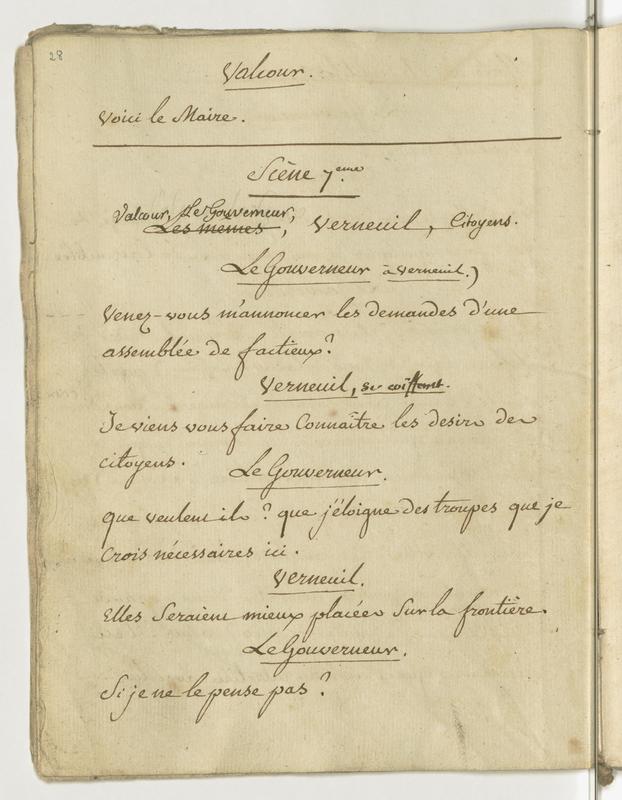 28
Valcour.
Voici le Maire.
Scène 7eme.
Valcour, Le Gouverneur,
Les memes, Verneuil, Citoyens.
Le Gouverneur à Verneuil.)
Venez-vous m'annoncer les demandes d'une
assemblée de factieux?
Verneuil, se coiffant.
Je viens vous faire Connaître les desirs des
citoyens.
Le Gouverneur.
que veulent ils? que j'éloigne des troupes que je
Crois nécessaires ici.
Verneuil.
Elles Seraient mieux placées Sur la frontière.
Le Gouverneur.
Si je ne le pense pas?